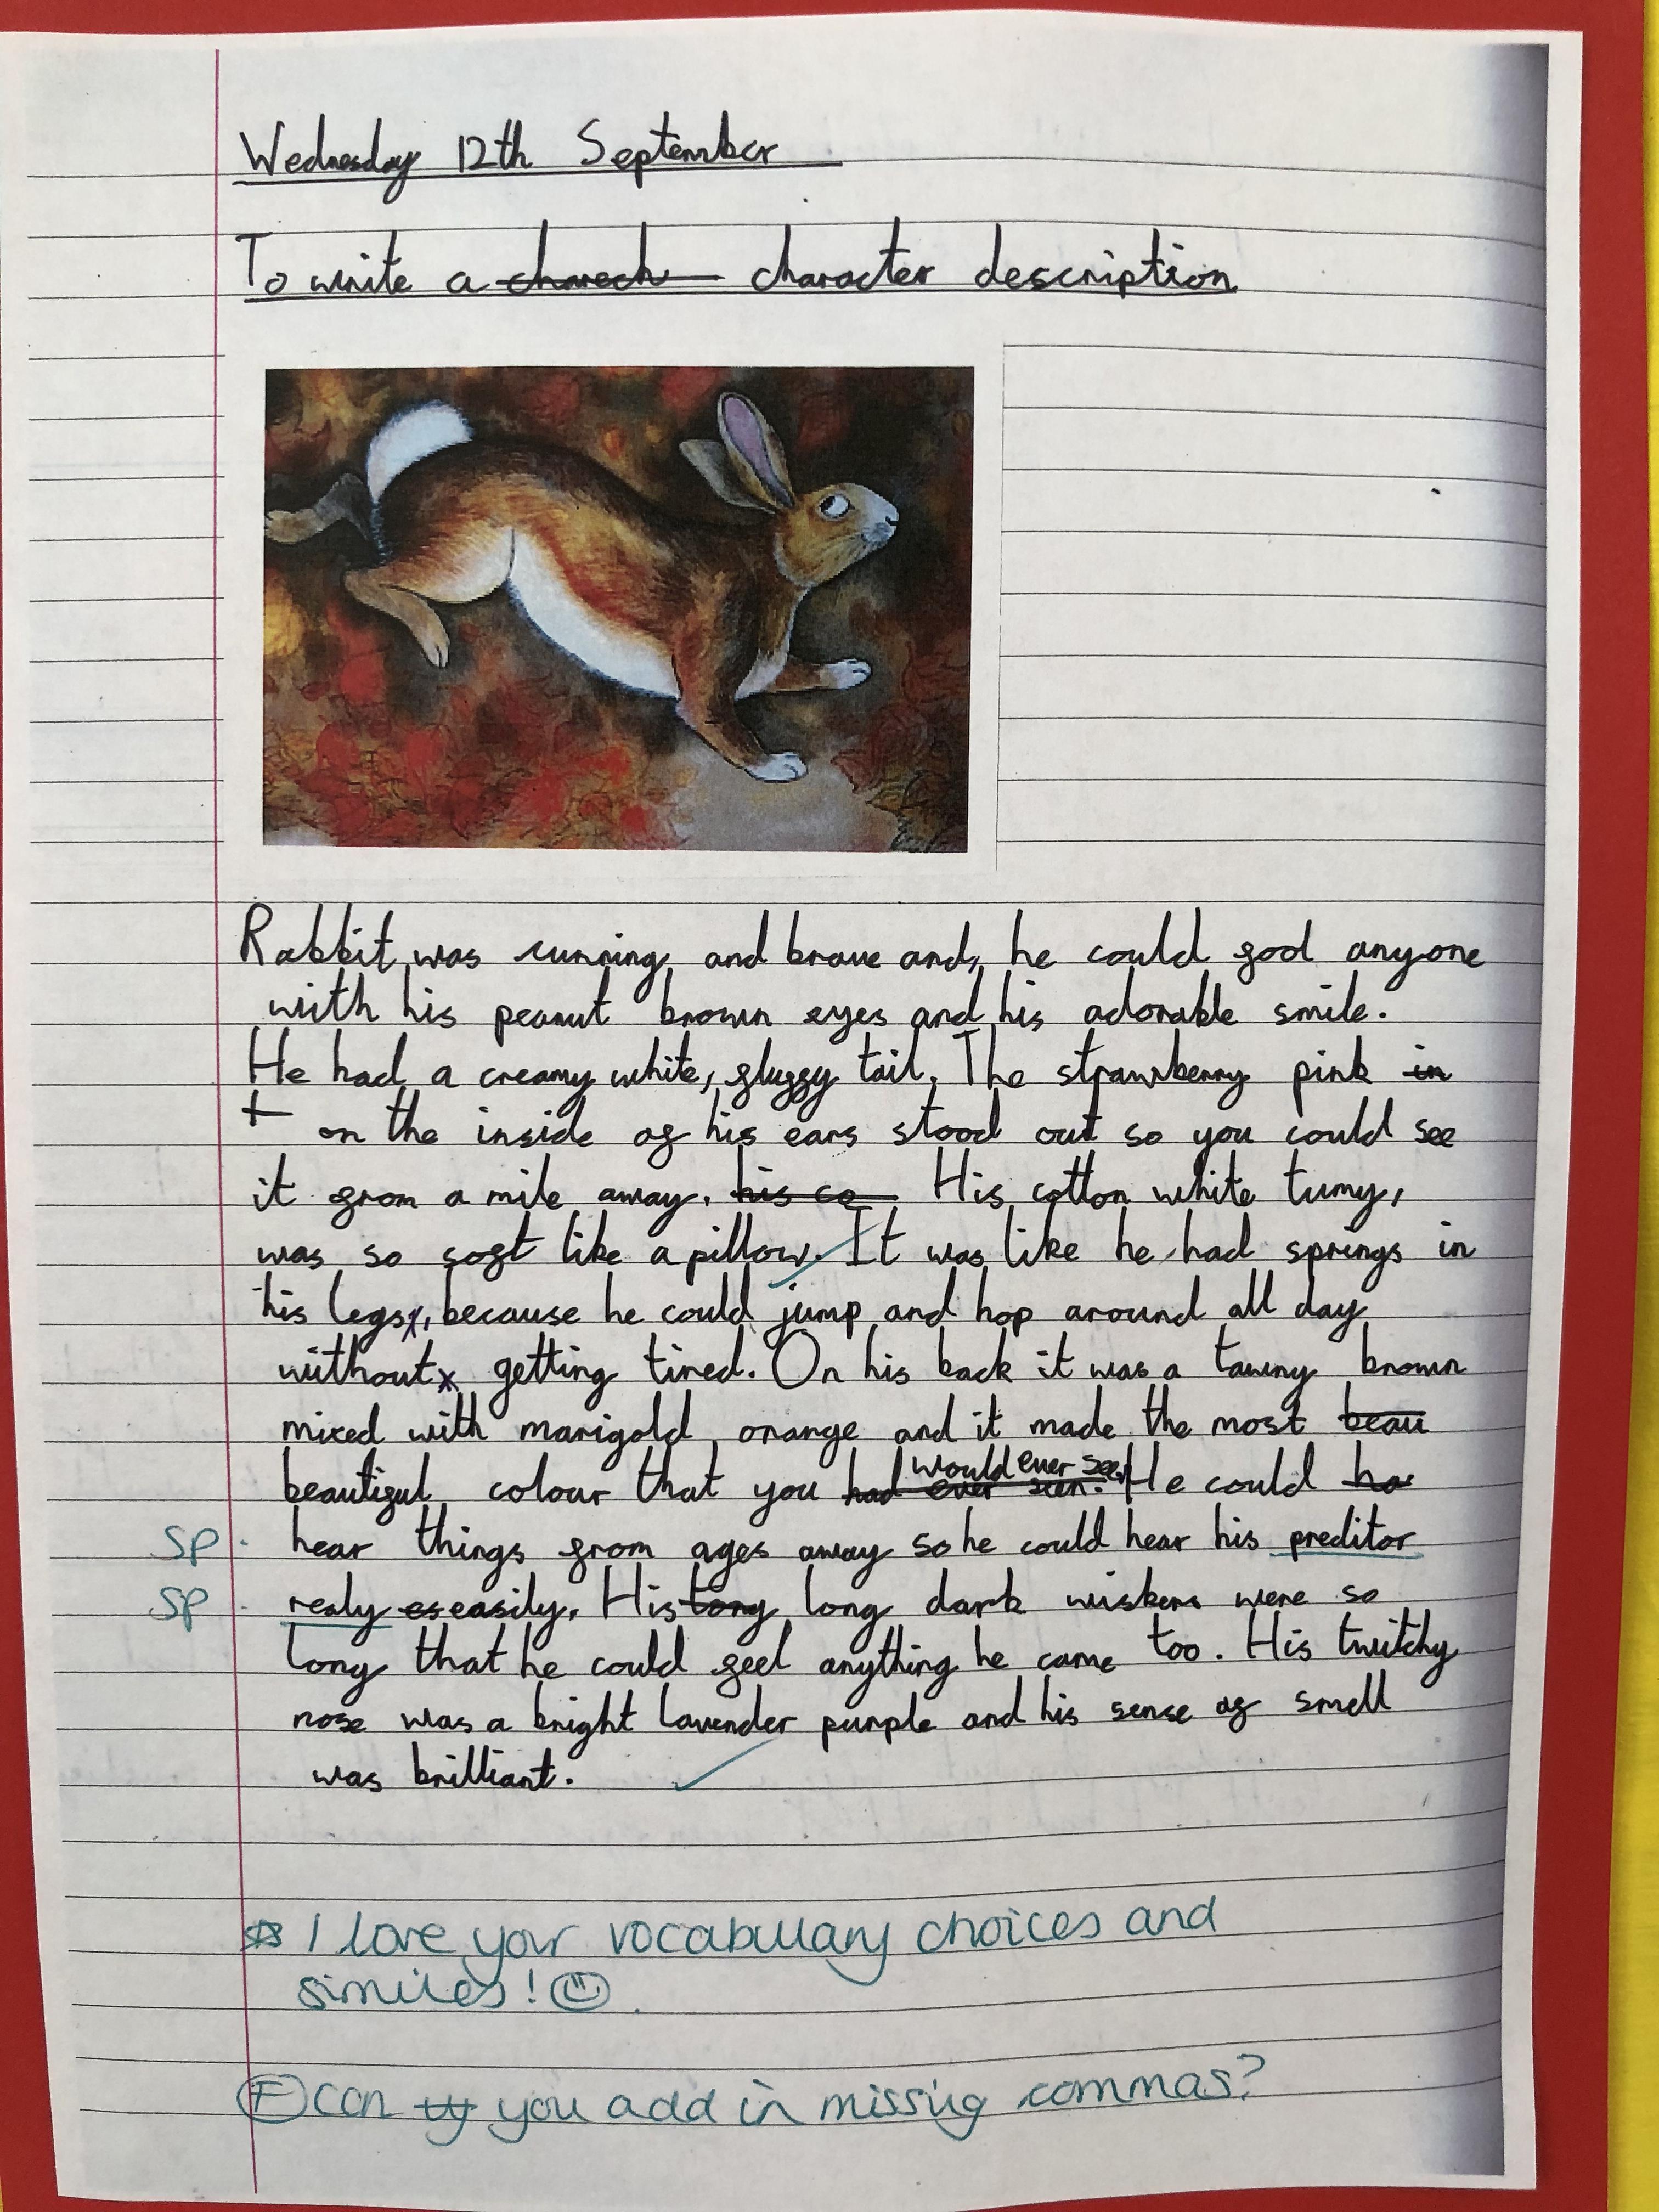 Wednesday 12th September
To write a charech character description
Rabbit was cunning and brave and, he could fool anyone
with his peanut brown eyes and his adorable smile.
He had a creamy white, fluffy tail. The strawberry pink in
on the inside of his ears stood out so you could see
it from a mile away. his co His cotton white tumy,
was so soft like a pillow. It was like he had springs in
his legs, because he could jump and hop around all day
without getting tired. On his back it was a tawny brown
mixed with marigold orange and it made the most beau
would ever see.
beautiful colour that you had ever seen. He could ha
sp . hear things from ages away so he could hear his preditor
sp . realy es easily. His long long dark wiskers were so
long that he could feel anything he came too. His twitchy
nose was a bright lavender purple and his sense of smell
was brilliant.
I love your vocabulary choices and
similes!
F can ty you add in missing commas?